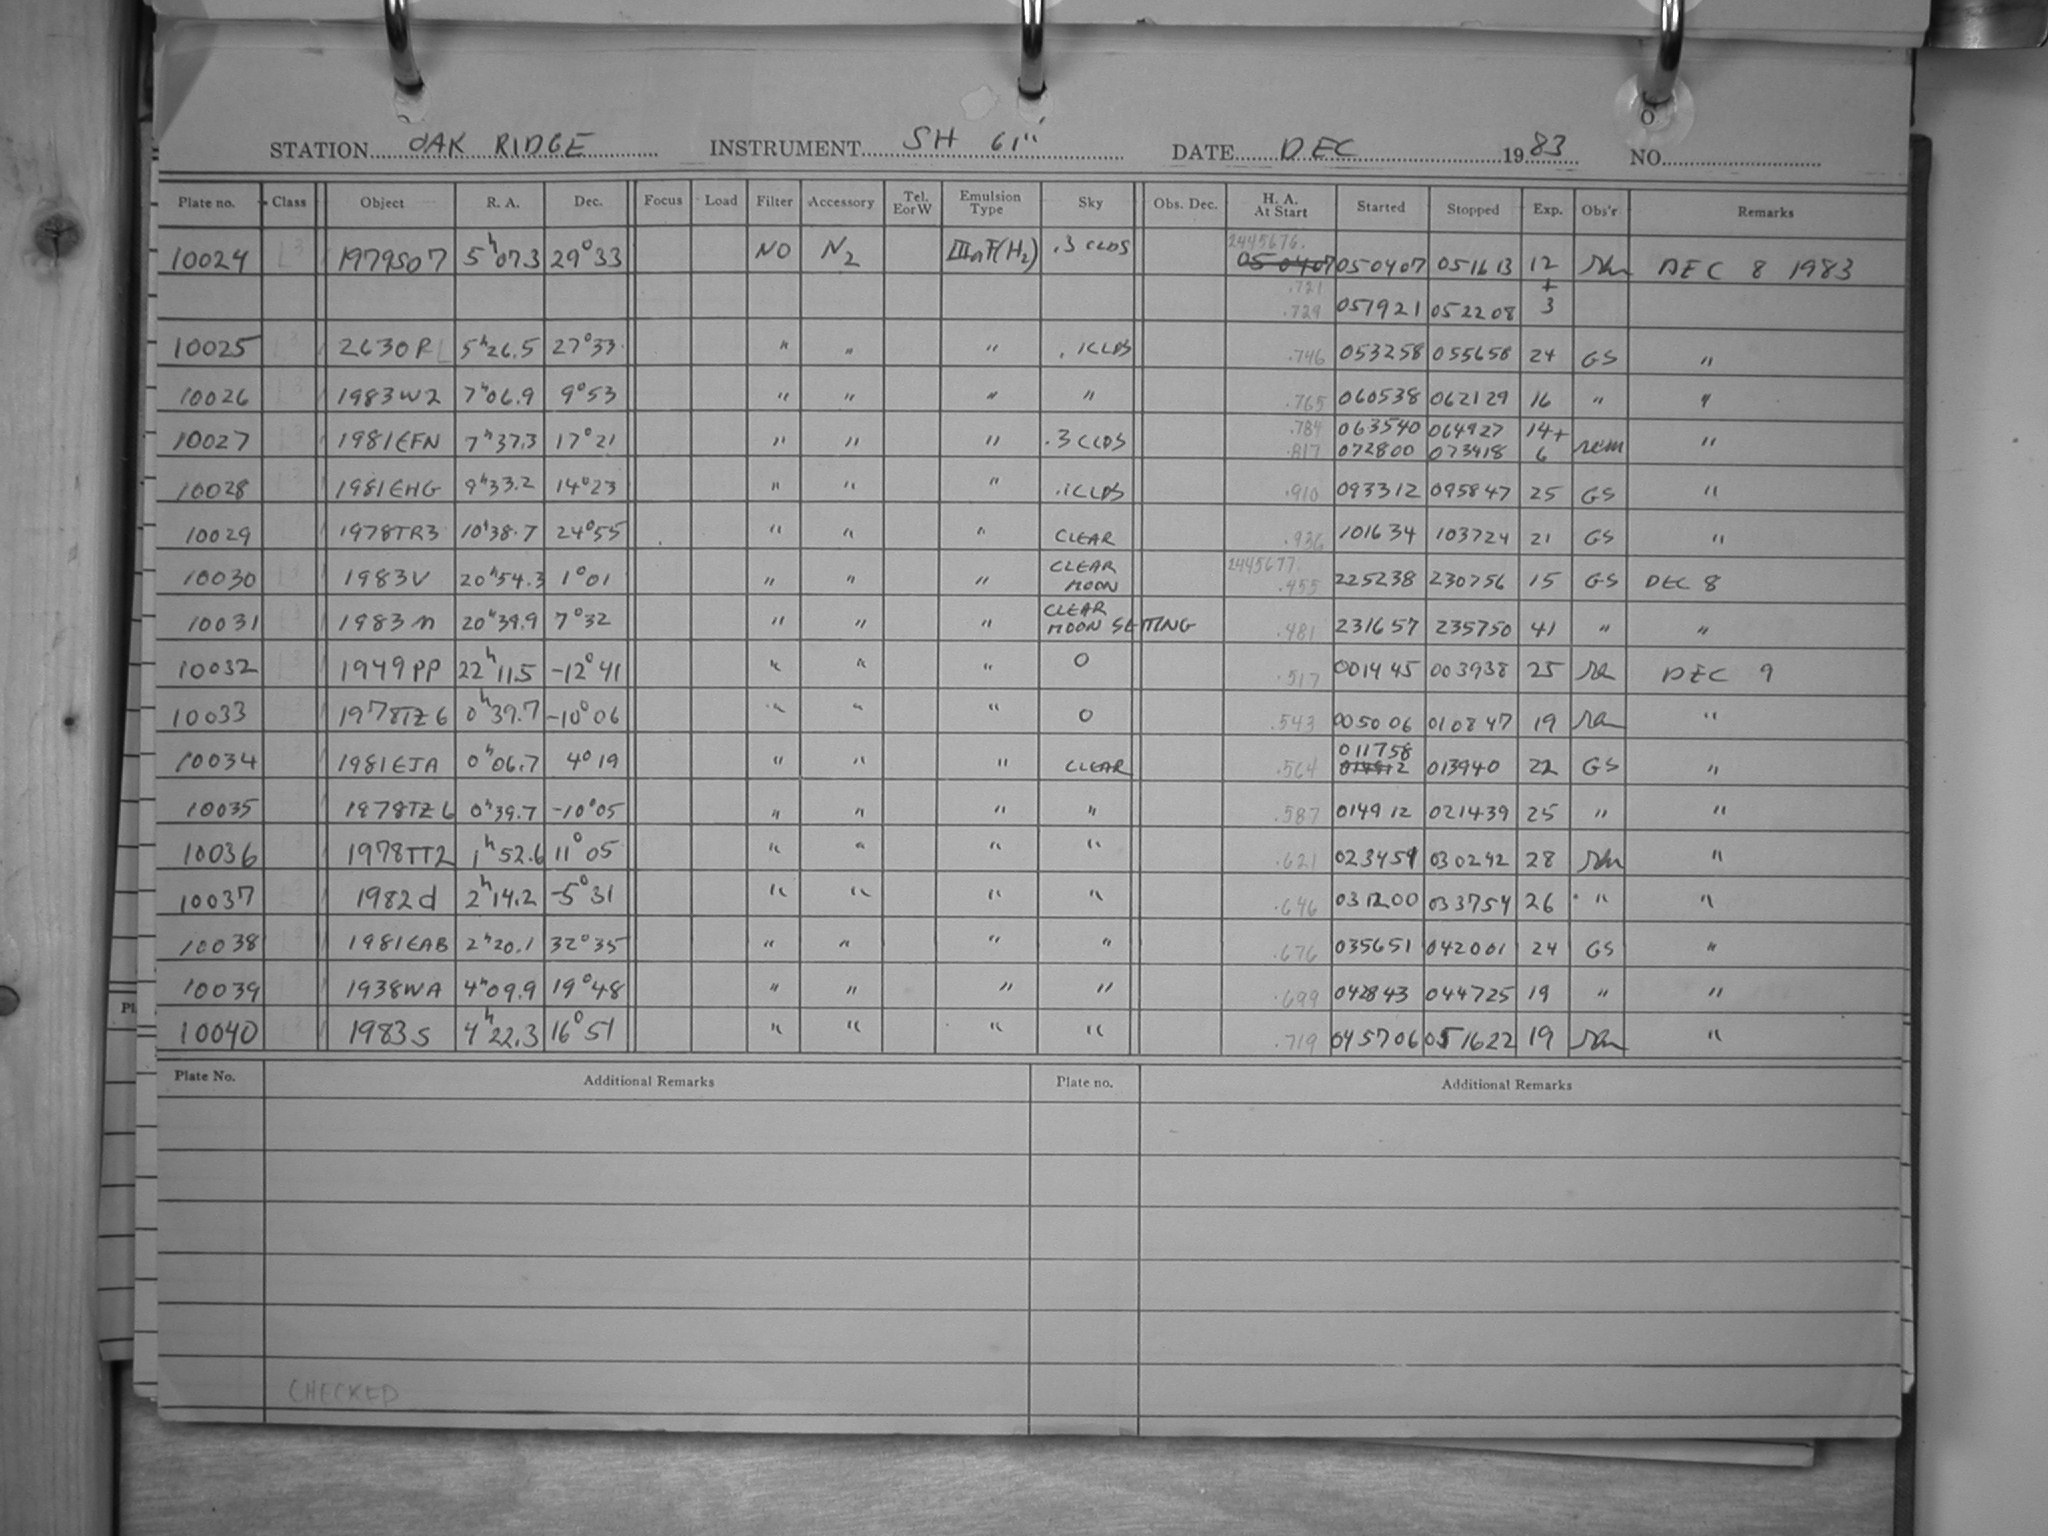 STATION OAK RIDGE INSTRUMENT SH 61" DATE DEC 1983 NO.
Plate no. Class Object R. A. Dec. Focus Load Filter Accessory Tel. EorW Emulsion Type Sky Obs. Dec. H. A. At Start Started Stopped Exp. Obs'r Remarks
10024 1979SO7 5h073 29°33 NO N2 IIIaF(H2) .3 CLDS 2445676. 050407 050407 051613 12 DEC 8 1983
.721 .729 051921 052208 + 3
10025 2630PL 5h26.5 27°33 " " " .1CLDS .746 053258 055658 24 GS "
10026 1983W2 7h06.9 9°53 " " " " .765 060538 062129 16 " "
10027 1981EFN 7h37.3 17°21 " " " .3 CLDS .784 063540 064927 14+ "
.817 072800 073418 6
10028 1981EHG 9h33.2 14°23 " " " .1CLDS .910 093312 095847 25 GS "
10029 1978TR3 10h38.7 24°55 " " " CLEAR .936 101634 103724 21 GS "
10030 1983V 20h54.3 1°01 " " " CLEAR MOON 2445677. .455 225238 230756 15 GS DEC 8
10031 1983n 20h39.9 7°32 " " " CLEAR MOON SETTING .481 231657 235750 41 " "
10032 1949PP 22h11.5 -12°41 " " " 0 .517 001445 003938 25 DEC 9
10033 1978TZ6 0h39.7 -10°06 " " " 0 .543 005006 010847 19 "
10034 1981EJA 0h06.7 4°19 " " " CLEAR .564 011758 014912 013940 22 GS "
10035 1978TZ6 0h39.7 -10°05 " " " " .587 014912 021439 25 " "
10036 1978TT2 1h52.6 11°05 " " " " .621 023459 030242 28 "
10037 1982d 2h14.2 -5°31 " " " " .646 031200 033754 26 " "
10038 1981EAB 2h20.1 32°35 " " " " .676 035651 042001 24 GS "
10039 1938WA 4h09.9 19°48 " " " " .699 042843 044725 19 " "
10040 1983S 4h22.3 16°51 " " " " .719 045706 051622 19 "
Plate No. Additional Remarks Plate no. Additional Remarks
CHECKED